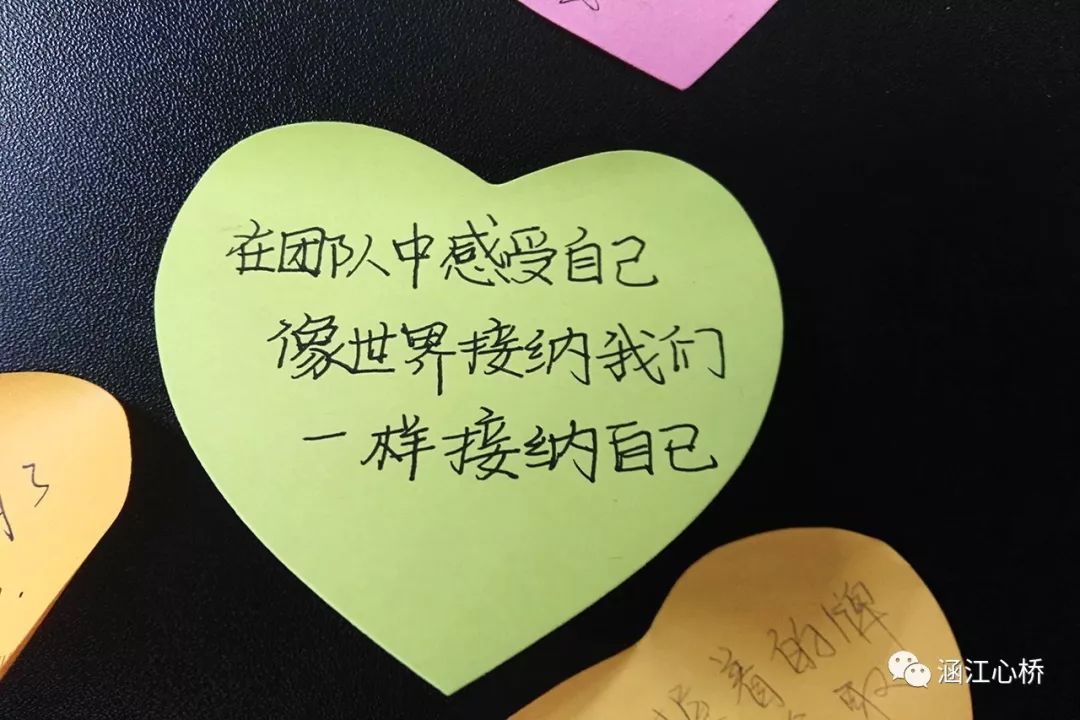 在团队中感受自己
像世界接纳我们
一样接纳自己
着的牌
取
涵江心桥